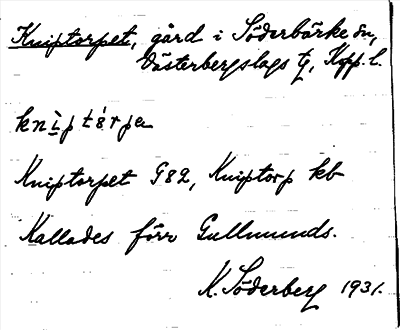 Kniptorpet, gård i Söderbärke sn,
Västerbergslags tg, Kopp. l.
knìptɜ́rpa
Kniptorpet G82, Kniptorp kb
Kallades förr Gullmunds.
K. Söderberg 1931.